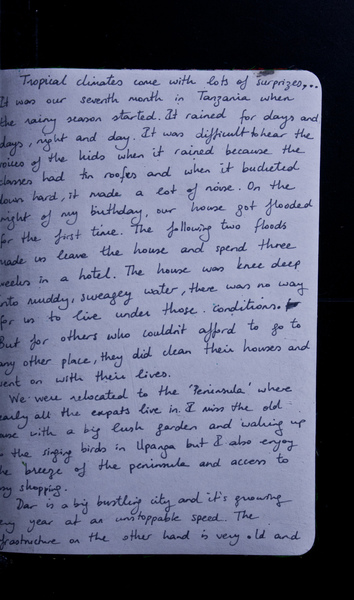 Tropical climates come with lots of surprizes,..
It was our seventh month in Tanzania when
the rainy season started. It rained for days and
days, night and day. It was difficult to hear the
voices of the kids when it rained because the
classes had tin roofes and when it bucketed
down hard, it made a lot of noise. On the
night of my birthday, our house got flooded
for the first time. The following two floods
made us leave the house and spend three
weeks in a hotel. The house was knee deep
into muddy, sweagey water, there was no way
for us to live under those conditions.
But for others who couldn't afford to go to
any other place, they did clean their houses and
went on with their lives.
We were relocated to the 'Peninsula' where
nearly all the expats live in. I miss the old
house with a big lush garden and waking up
the singing birds in Upanga but I also enjoy
the breeze of the peninsula and access to
shopping.
Dar is a big bustling city and it's growing
year at an unstoppable speed. The
frastructure on the other hand is very old and